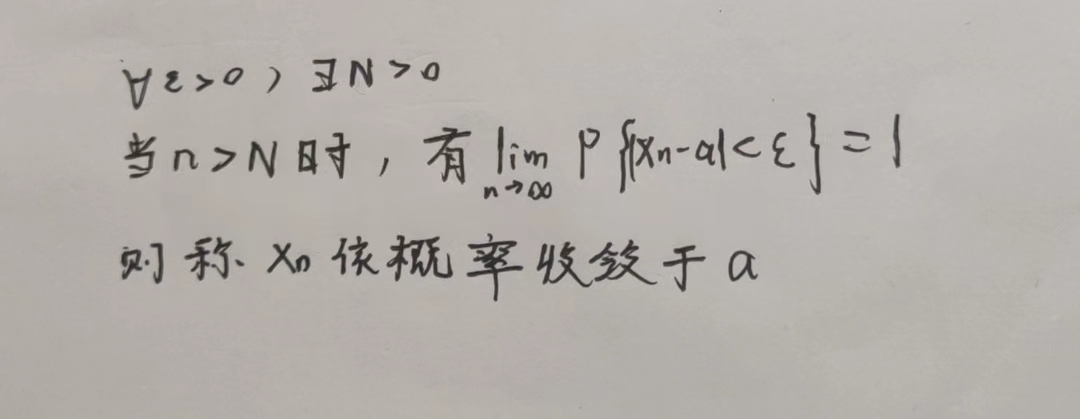 ∀ε>0，∃N>0
当n>N时，有 lim n→∞ P{|Xn-a|<ε}=1
则称 Xn 依概率收敛于 a